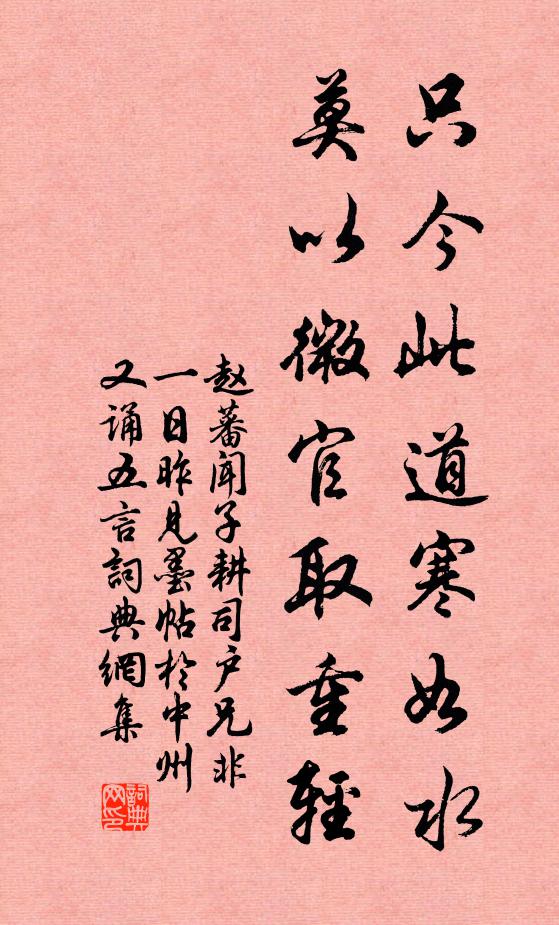 只今此道寒如水
莫以微官取重輕
赵蕃闻子耕司户兄非
一日昨見墨帖於中州
又诵五言詞典網集
詞典网印